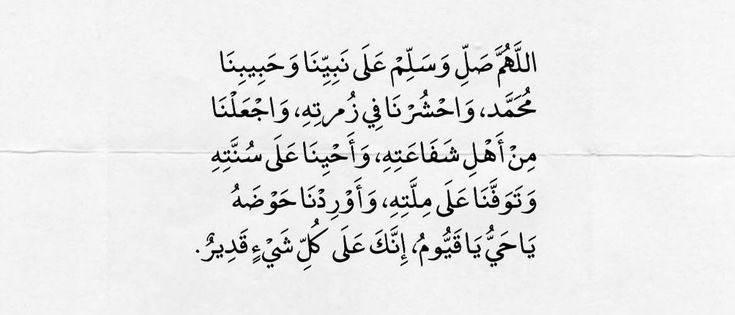 اللَّهُمَّ صَلِّ وَسَلِّمْ عَلَى نَبِيِّنَا وَحَبِيبِنَا
مُحَمَّد، وَاحْشُرْنَا فِي زُمرتِهِ، وَاجْعَلْنَا
مِنْ أَهْلِ شَفَاعَتِهِ، وَأَحْيِنَا عَلَى سُنَّتِهِ
وَتَوَفَّنَا عَلَى مِلَّتِهِ، وَأَوْرِدْنَا حَوْضَهُ
يَا حَيُّ يَا قَيُّومُ، إِنَّكَ عَلَى كُلِّ شَيْءٍ قَدِيرٌ.